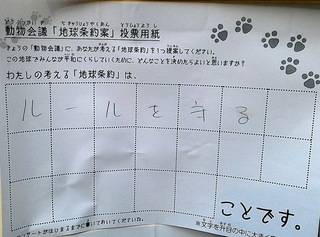 動物会議「地球条約案」投票用紙
きょうの「動物会議」に、あなたが考える「地球条約」を1つ提案してください。
この地球でみんなが平和にくらしていくために、どんなことを決めたらよいと思いますか?
わたしの考える「地球条約」は、
ルールを守る
ことです。
ンサートがはじまるまでに書いておいてくださいね。
※文字を升目の中に大きく